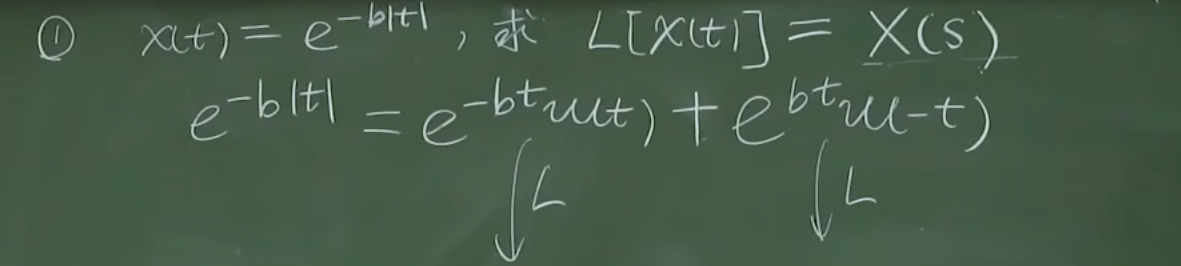 ① x(t) = e^{-b|t|}, 求 L[x(t)] = X(s)
e^{-b|t|} = e^{-bt}u(t) + e^{bt}u(-t)
↓L ↓L